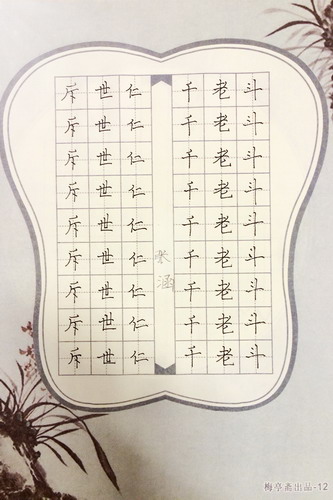 斗斗斗斗斗斗斗斗斗
老老老老老老老老老
千千千千千千千千千
涵
仁仁仁仁仁仁仁仁仁
世世世世世世世世世
斥斥斥斥斥斥斥斥斥
梅亭齋出品-12